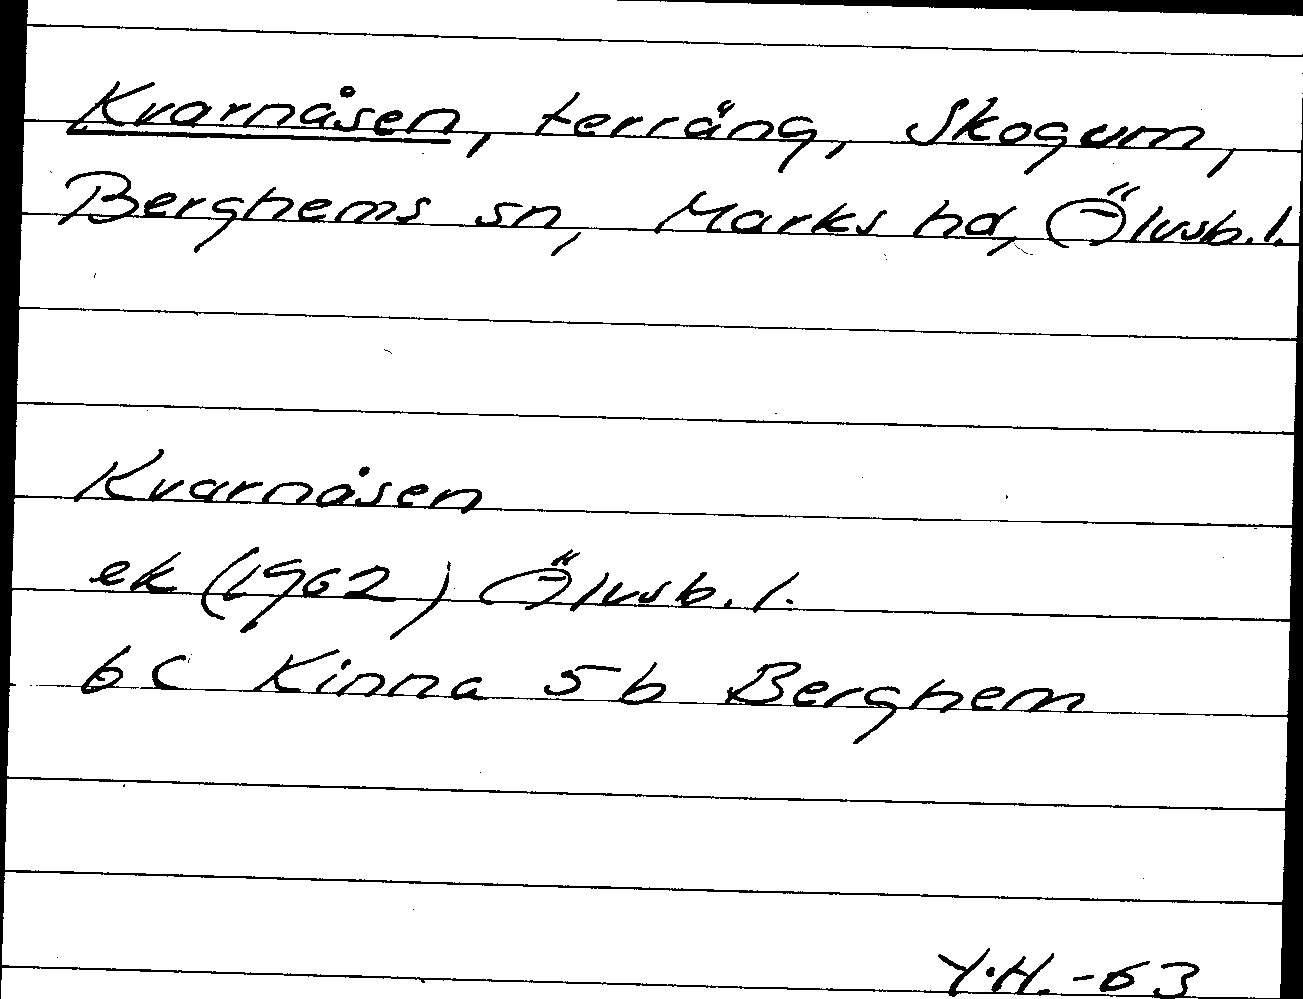 Kvarnåsen, terräng, Skogum,
Berghems sn, Marks hd, Älvsb.l.
Kvarnåsen
ek (1962) Älvsb.l.
6C Kinna 5b Berghem
Y.H. -63